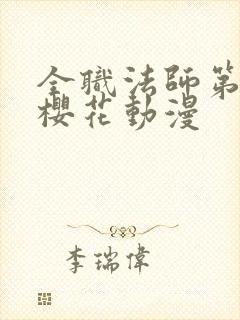 全職法師第
櫻花動漫
李瑞偉